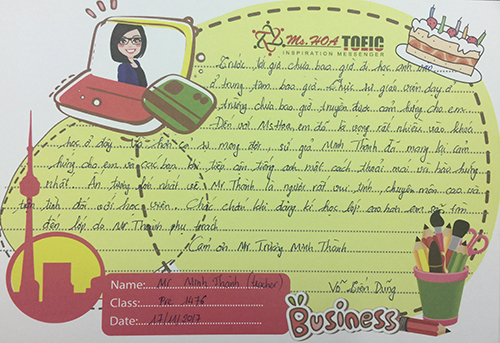 Ms.HOA TOEIC
INSPIRATION MESSENGER
Trước tới giờ chưa bao giờ đi học anh văn
ở trung tâm bao giờ. Thực sự giáo viên dạy ở
trường chưa bao giờ truyền được cảm hứng cho em.
Đến với Ms Hoa, em đã kì vọng rất nhiều vào khóa
học ở đây. Và đúng như sự mong đợi, sứ giả Minh Thành đã mang lại cảm
hứng cho em và các bạn khi tiếp cận tiếng anh một cách thoải mái và hào hứng
nhất. Ấn tượng lớn nhất về Mr Thành là người rất vui tính, chuyên môn cao và
tận tình đối với học viên. Chắc chắn khi đăng kí học lớp cao hơn em sẽ tìm
đến lớp do Mr Thành phụ trách
Cảm ơn Mr. Trường Minh Thành.
Name: Mr Minh Thành (teacher)
Võ Tiến Dũng
Class: Pre 1476
Date: 17/11/2017
Business